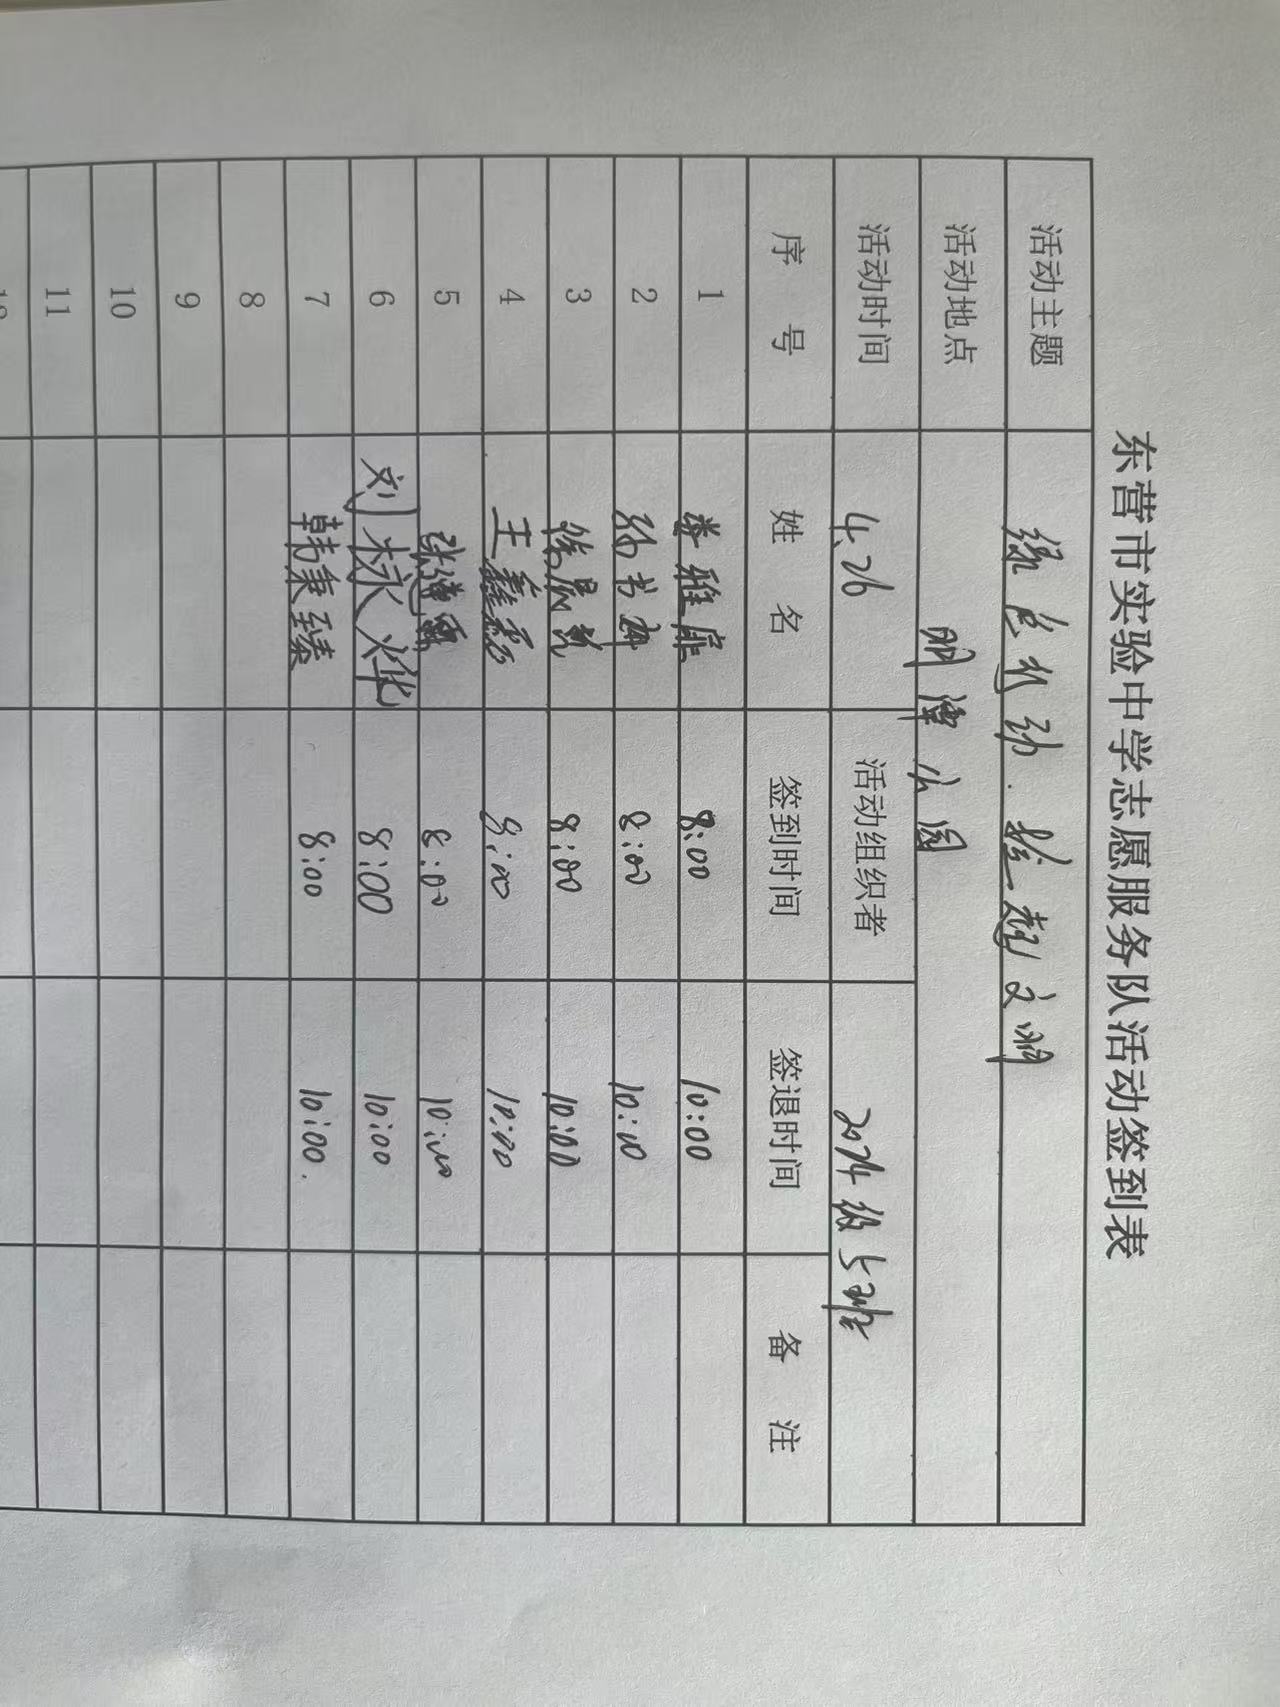 东营市实验中学志愿服务队活动签到表
活动主题 绿色行动.捡起文明
活动地点 明潭公园
活动时间 4.26 活动组织者 2024级5班
序号 姓名 签到时间 签退时间 备注
1 娄雅雯 8:00 10:00
2 孙书 8:00 10:00
3 晨 8:00 10:00
4 王鑫 8:00 10:00
5 张 8:00 10:00
6 刘 烨 8:00 10:00
7 韩秉臻 8:00 10:00.
8
9
10
11